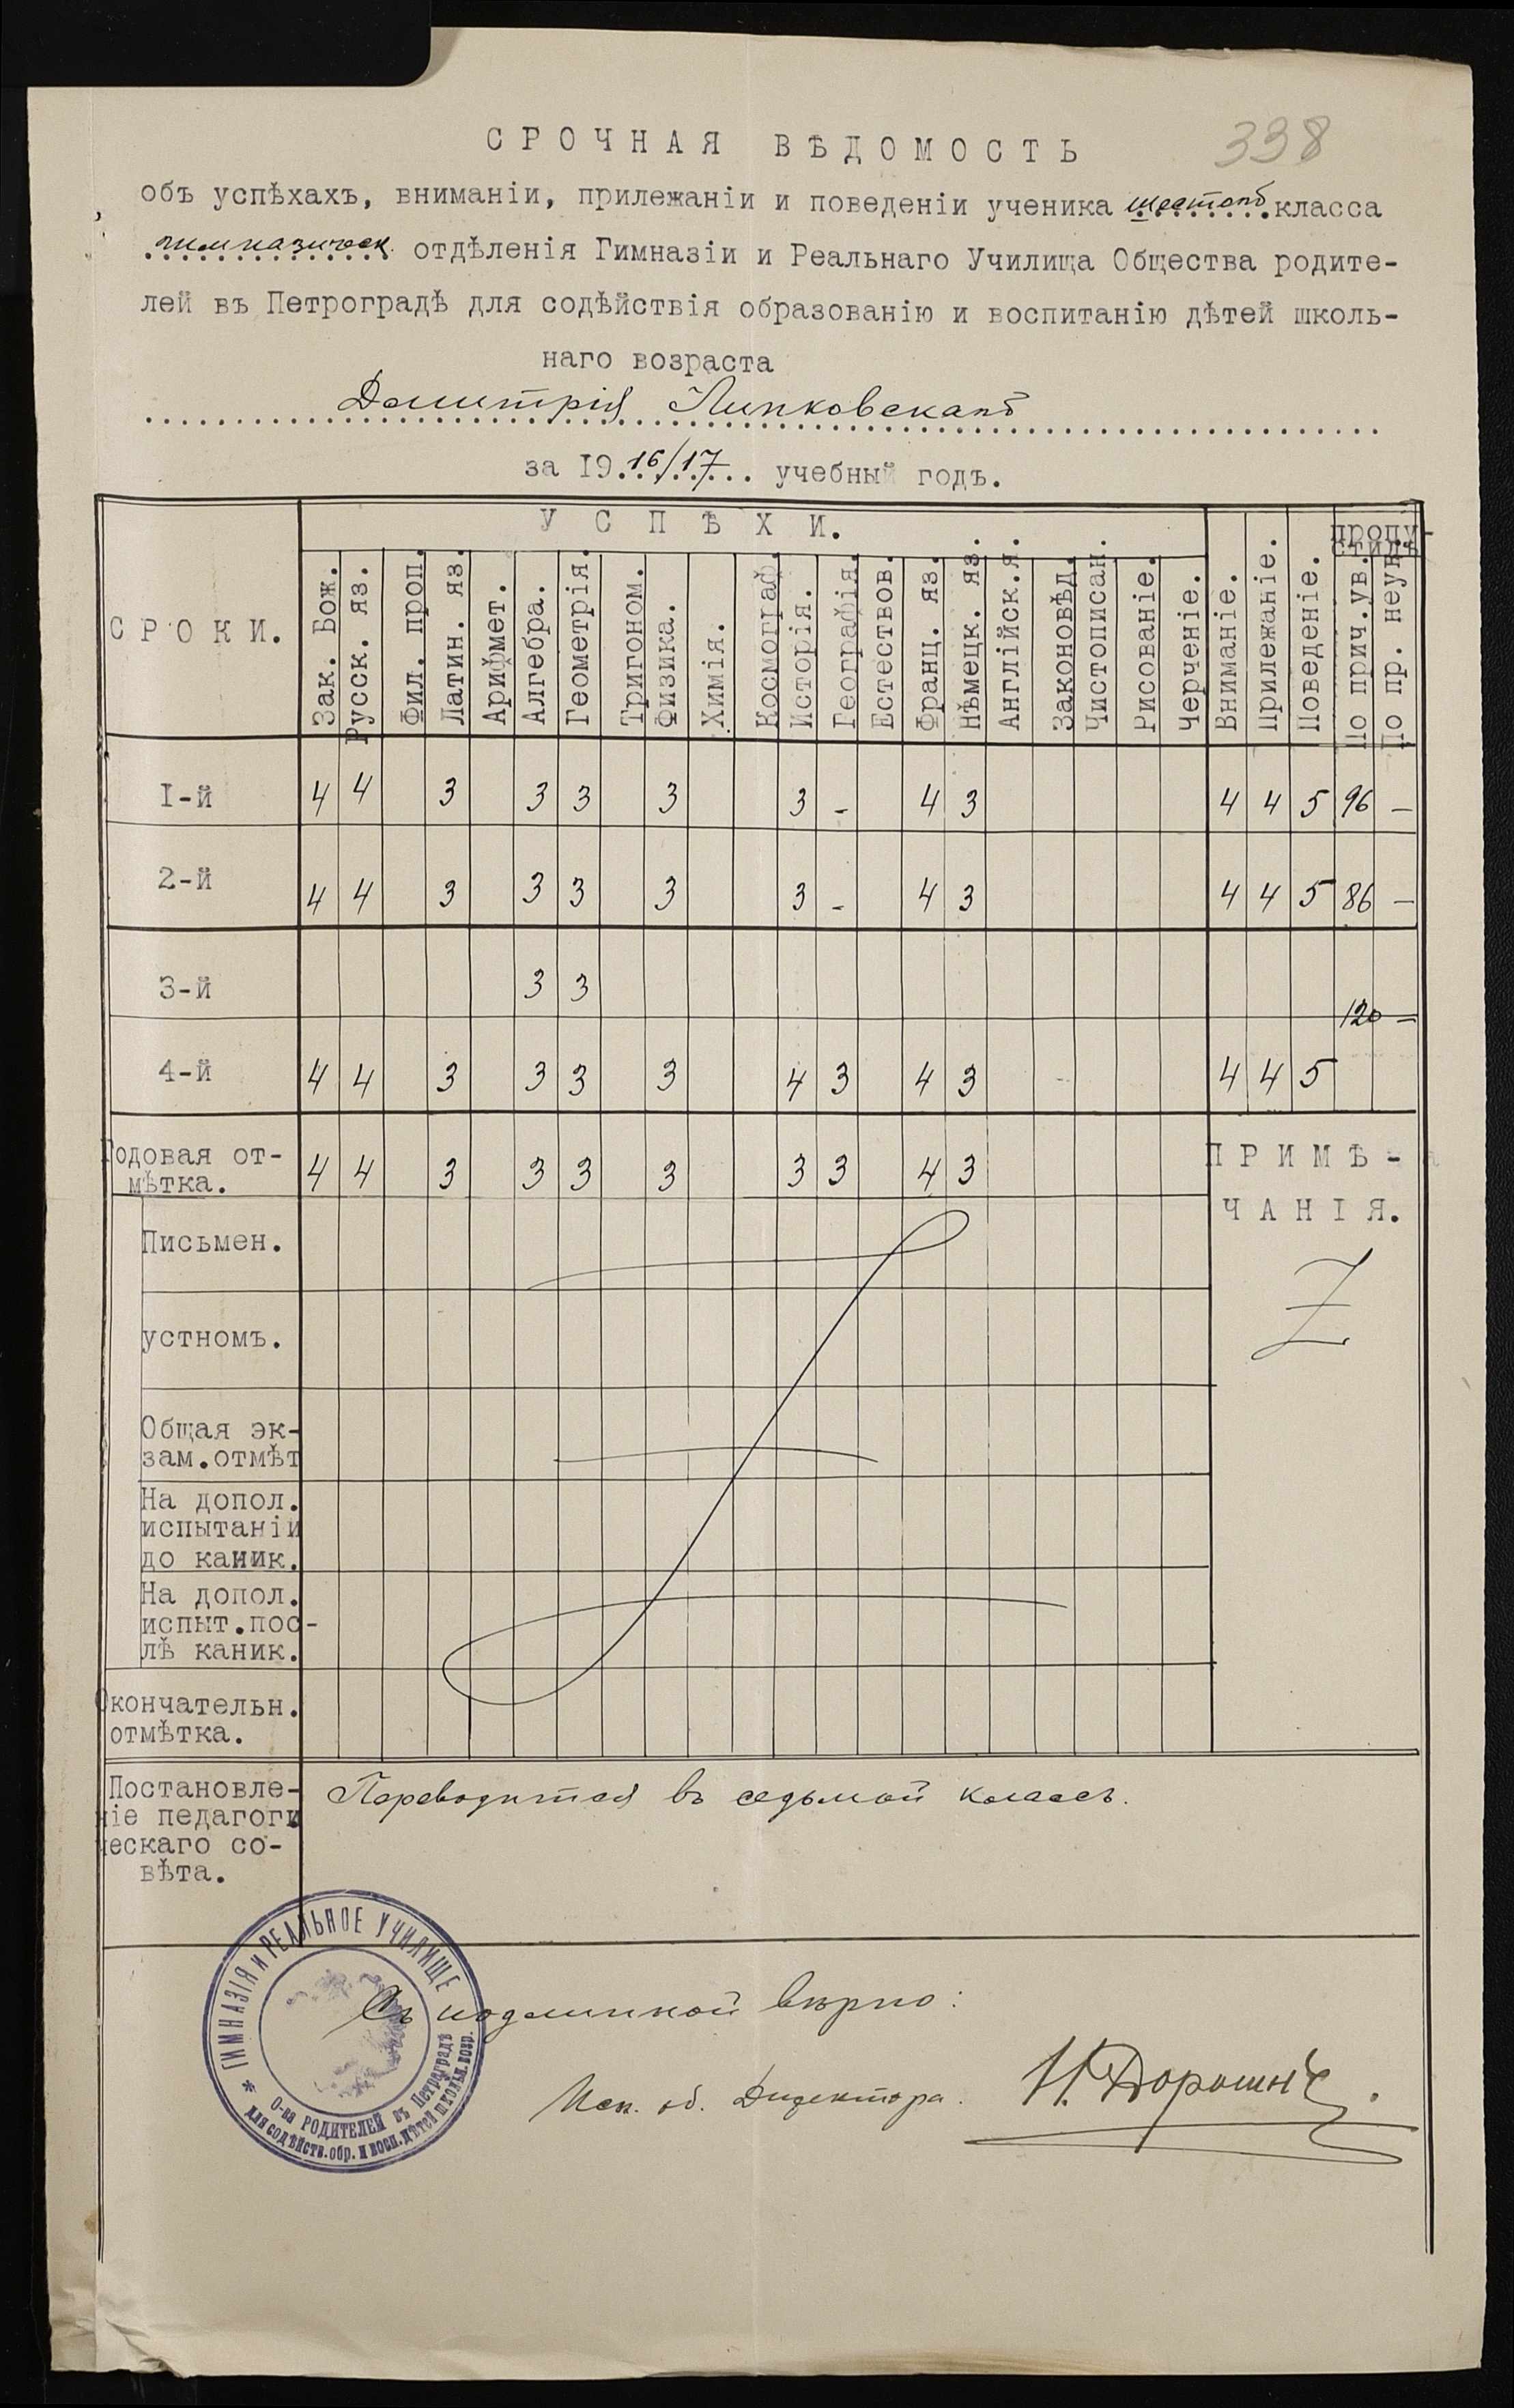 338
СРОЧНАЯ ВѢДОМОСТЬ
объ успѣхахъ, вниманіи, прилежаніи и поведеніи ученика шестого класса
гимназическ. отдѣленія Гимназіи и Реальнаго Училища Общества родите-
лей въ Петроградѣ для содѣйствія образованію и воспитанію дѣтей школь-
наго возраста
Димитрія Липковскаго
за 1916/17 учебный годъ.
СРОКИ.
УСПѢХИ.
Зак. Бож.
Русск. яз.
Фил. проп.
Латин. яз.
Арифмет.
Алгебра.
Геометрія.
Тригоном.
Физика.
Химія.
Космограф.
Исторія.
Географія.
Естествов.
Франц. яз.
Нѣмецк. яз.
Англійск.я.
Законовѣд.
Чистописан.
Рисованіе.
Черченіе.
Вниманіе.
Прилежаніе.
Поведеніе.
пропу-
стилъ
По прич.ув.
По пр. неув.
I-й 4 4 3 3 3 3 3 - 4 3 4 4 5 96 —
2-й 4 4 3 3 3 3 3 - 4 3 4 4 5 86 —
3-й 3 3
120 —
4-й 4 4 3 3 3 3 4 3 4 3 4 4 5
Годовая от-
мѣтка. 4 4 3 3 3 3 3 3 4 3
ПРИМѢ-
ЧАНІЯ.
Z
Письмен.
устномъ.
Общая эк-
зам.отмѣт
На допол.
испытаніи
до каник.
На допол.
испыт.пос-
лѣ каник.
Окончательн.
отмѣтка.
Постановле-
ніе педагоги
ческаго со-
вѣта.
Переводится въ седьмой классъ.
* ГИМНАЗІЯ и РЕАЛЬНОЕ УЧИЛИЩЕ
О-ва РОДИТЕЛЕЙ въ Петраградѣ
для содѣйств. обр. и восп. дѣтей школьн. возр.
Съ подлинной вѣрно:
Исп. об. Директора. Н. Дорошніе